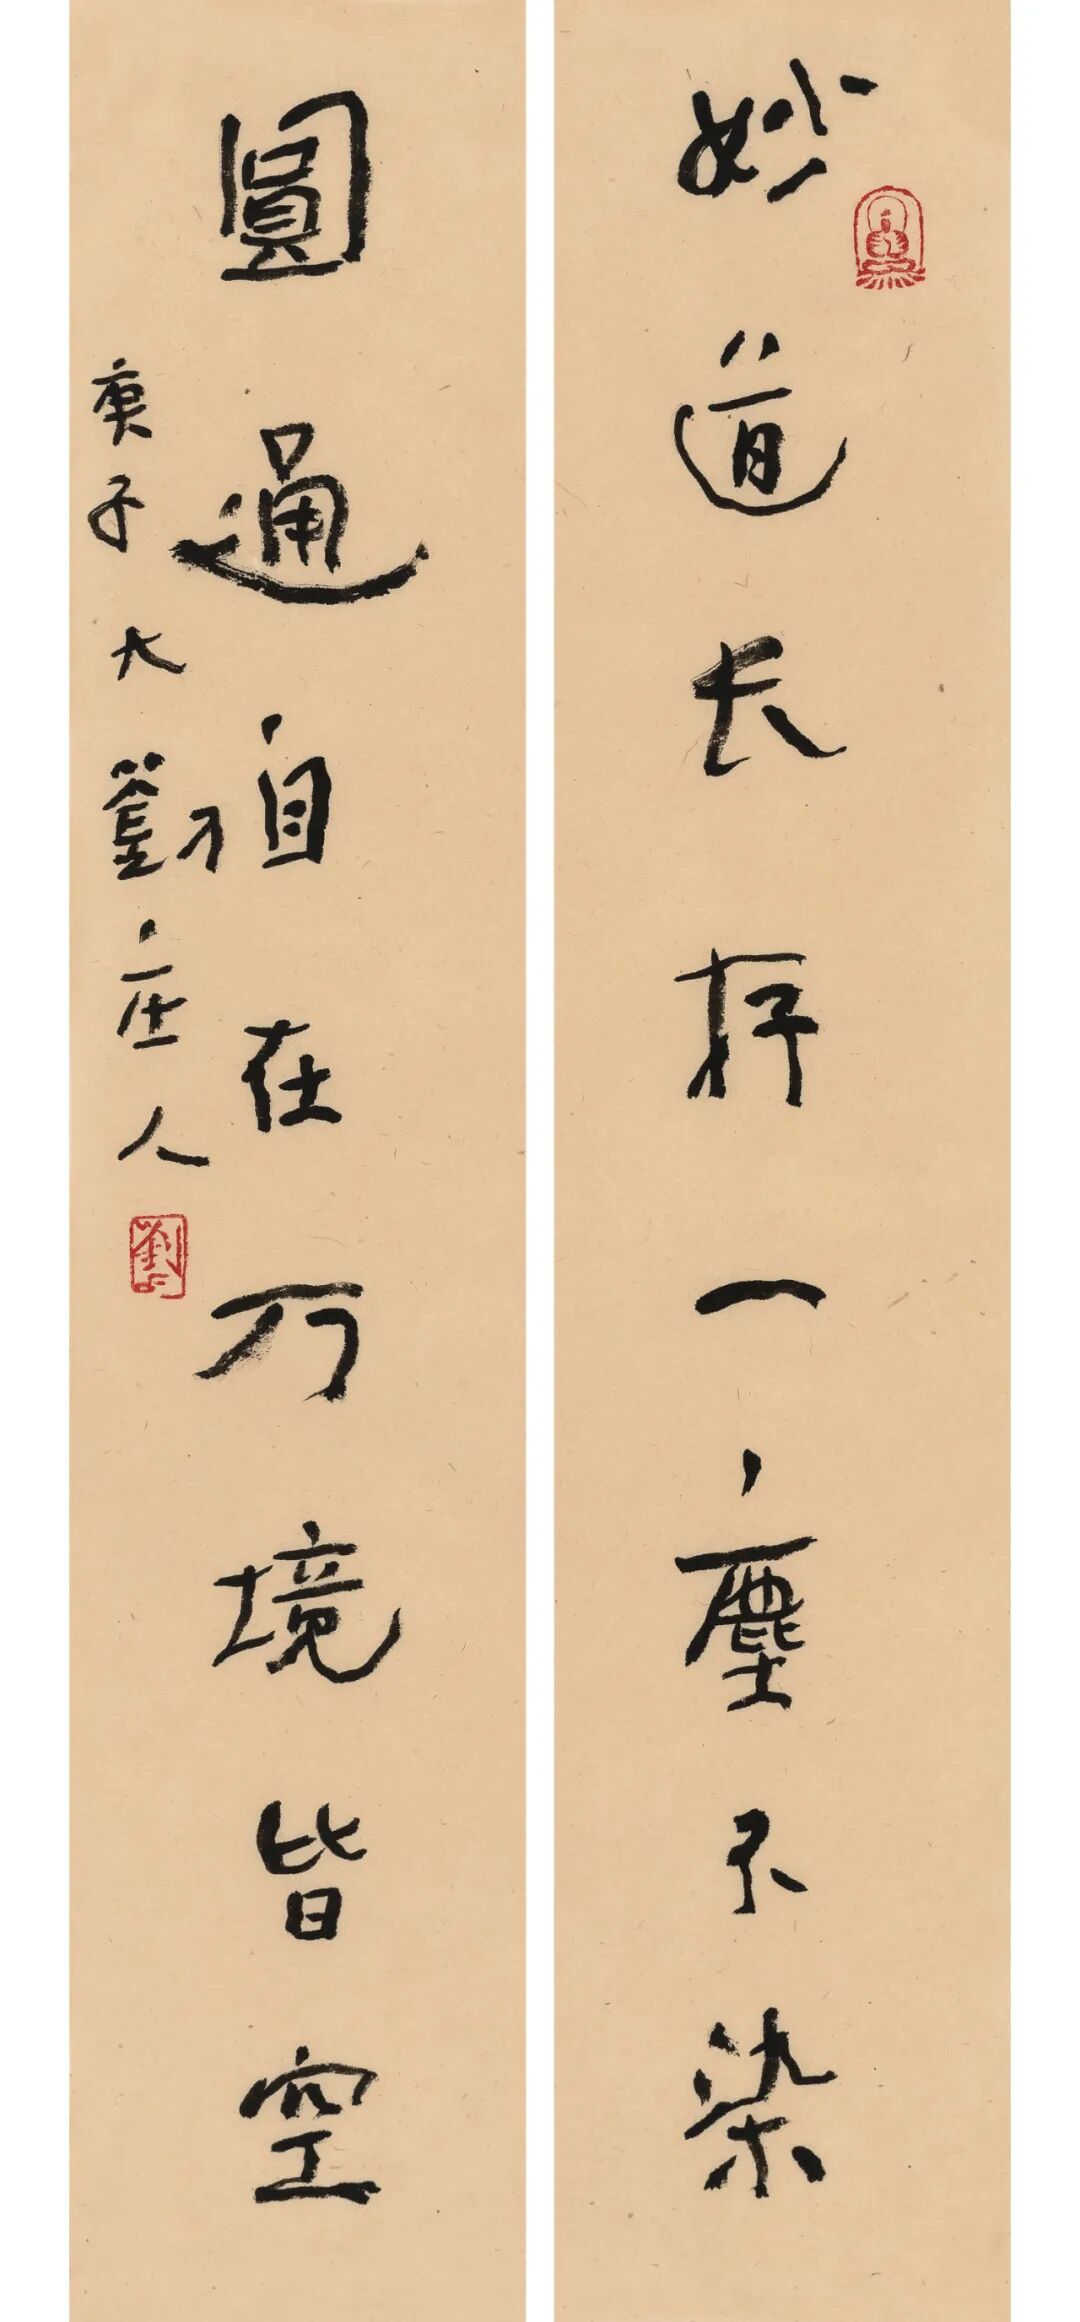 妙道长存一塵不染
圓通自在万境皆空
庚子大劉庄人
劉